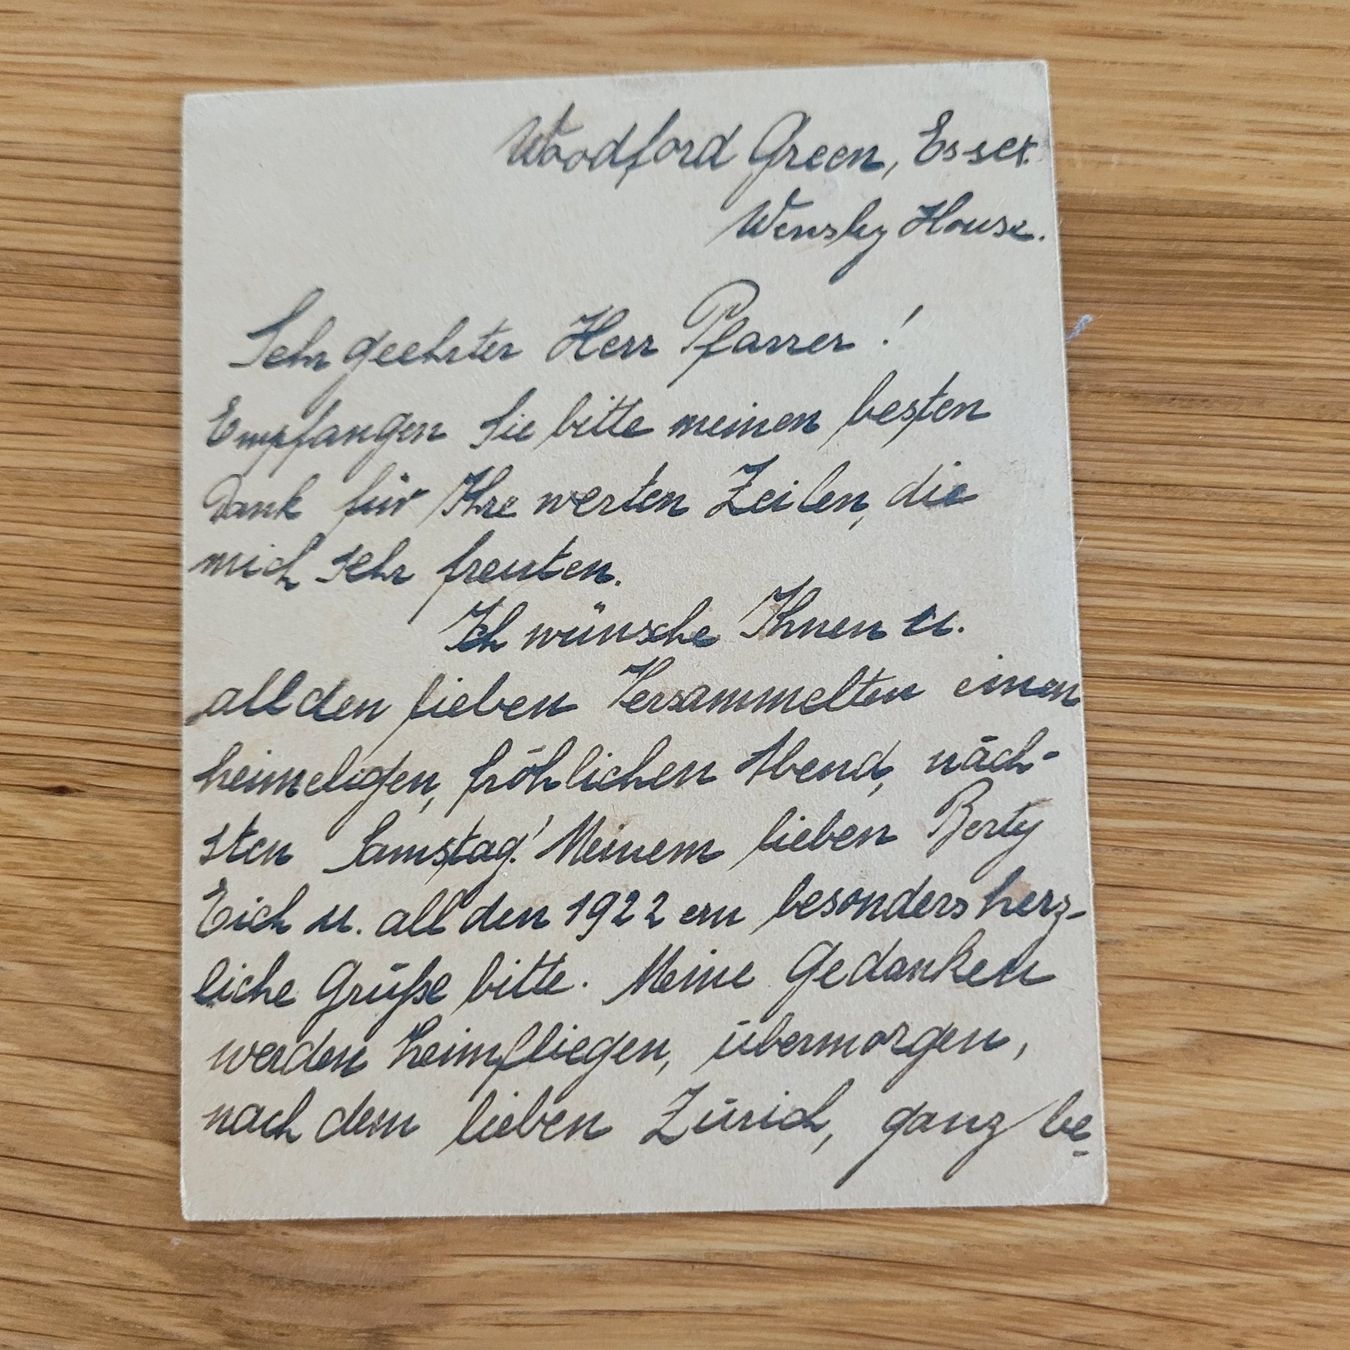 Woodford Green, Essex.
Wensley House.
Sehr geehrter Herr Pfarrer!
Empfangen Sie bitte meinen besten
Dank für Ihre werten Zeilen, die
mich sehr freuten.
Ich wünsche Ihnen u.
all den lieben Versammelten einen
heimeligen, fröhlichen Abend, näch-
sten Samstag! Meinem lieben Berty
u. all den 1922 ern besonders herz-
liche Grüße bitte. Meine Gedanken
werden heimfliegen, übermorgen,
nach dem lieben Zürich, ganz be-